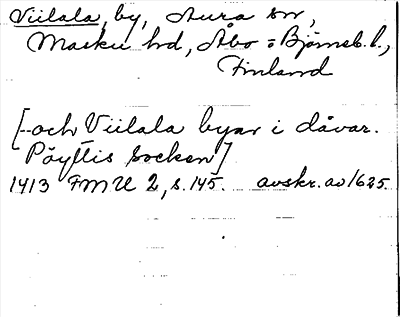 Viilala, by, Aura sn,
Masku hd, Åbo-Björneb. l.,
Finland
[- och Viilala byar i dåvar.
Pöyttis socken]
1413 FMU 2, s. 145. avskr. av 1625.